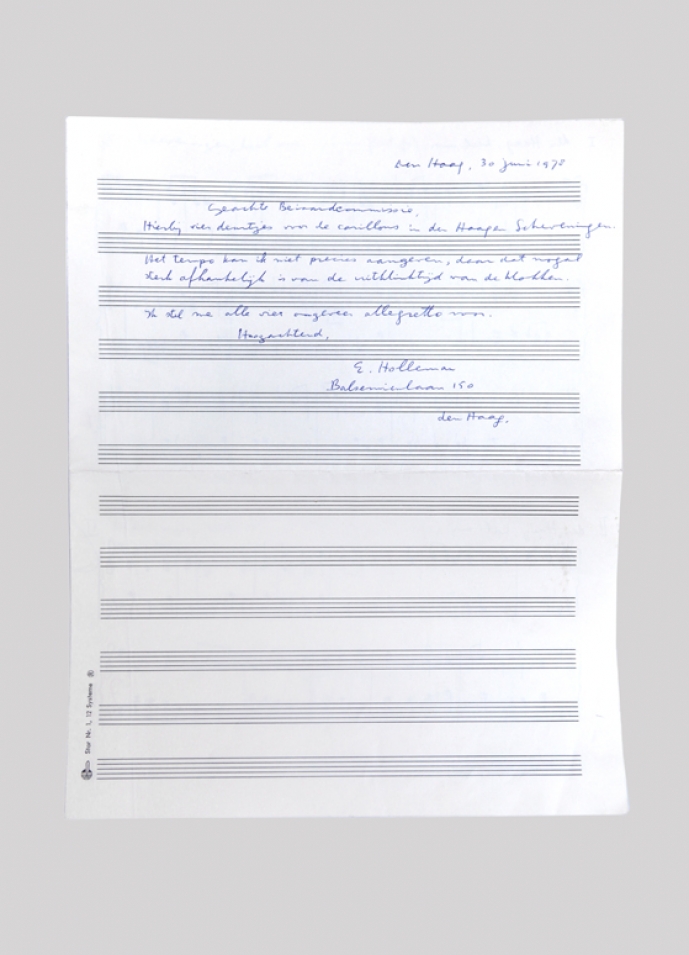 den Haag, 30 juni 1978
Geachte Beiaardcommissie,
Hierbij vier deuntjes voor de carillons in den Haag en Scheveningen.
Het tempo kan ik niet precies aangeven, daar dat nogal
sterk afhankelijk is van de uitklinktijd van de klokken.
Ik stel me alle vier ongeveer allegretto voor.
Hoogachtend,
E. Holleman
Balsemienlaan 190
den Haag.
Star Nr. 1, 12 Systeme